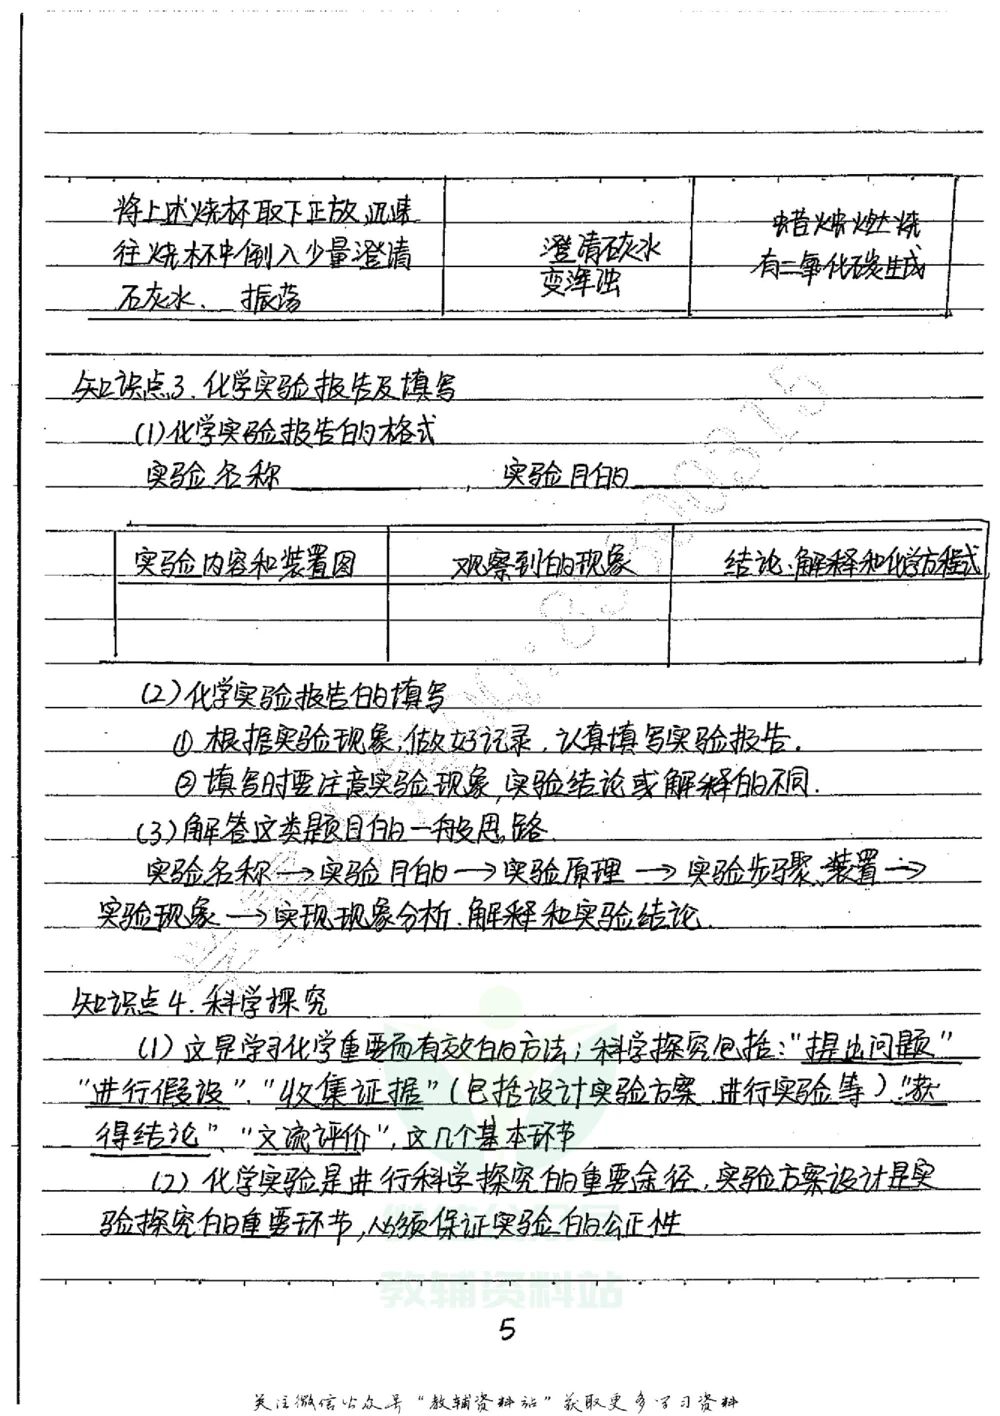 将上述烧杯取下正放,迅速
往烧杯中倒入少量澄清
石灰水、振荡
澄清石灰水
变浑浊
蜡烛燃烧
有二氧化碳生成
知识点3.化学实验报告及填写
(1)化学实验报告的格式
实验名称________,实验目的________
实验内容和装置图 观察到的现象 结论、解释和化学方程式
(2)化学实验报告的填写
①根据实验现象,做好记录,认真填写实验报告.
②填写时要注意实验现象,实验结论或解释的不同.
(3)解答这类题目的一般思路.
实验名称→实验目的→实验原理→实验步骤、装置→
实验现象→实现现象分析.解释和实验结论.
知识点4.科学探究
(1)这是学习化学重要而有效的方法;科学探究包括:"提出问题"
"进行假设"."收集证据"(包括设计实验方案.进行实验等)."获
得结论"、"交流评价",这几个基本环节
(2)化学实验是进行科学探究的重要途径,实验方案设计是实
验探究的重要环节,必须保证实验的公正性
教辅资料站
5
关注微信公众号"教辅资料站"获取更多学习资料